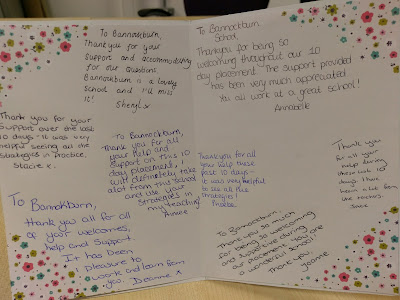 To Bannockburn,
Thank you for your
Support and accommodating
for our Question!
Bannockburn is a lovely
School and I'll miss
it!
Sheryl x
Thank you for your
Support over the last
10 days - it was very
helpful seeing all the
Strategies in Practice.
Stacie x.
To Bannockburn,
Thank you for all
your help and
Support on this 10
day placement, I
will definitely take
alot from this School
and use your
Strategies in
my teaching
To Bannockburn,
thank you all for all
of your welcomes,
help and Support.
It has been
pleasure to
work and learn from
you. Deanne x
To Bannockburn
School,
Thankyou for being so
welcoming throughout our 10
day placement. The support provided
has been very much appreciated
You all work at a great school!
Annabelle
Thankyou for all
your help these
past 10 days -
it was very helpful
to see all the
strategies!
Phoebe
Thank you
for all your
help during
these last 10
days. I have
learn a lot from
the
To Bannockburn,
Thank you so much
for being so welcoming
and supportive during
our placement. You are
a wonderful school!
Thank you
Joanne